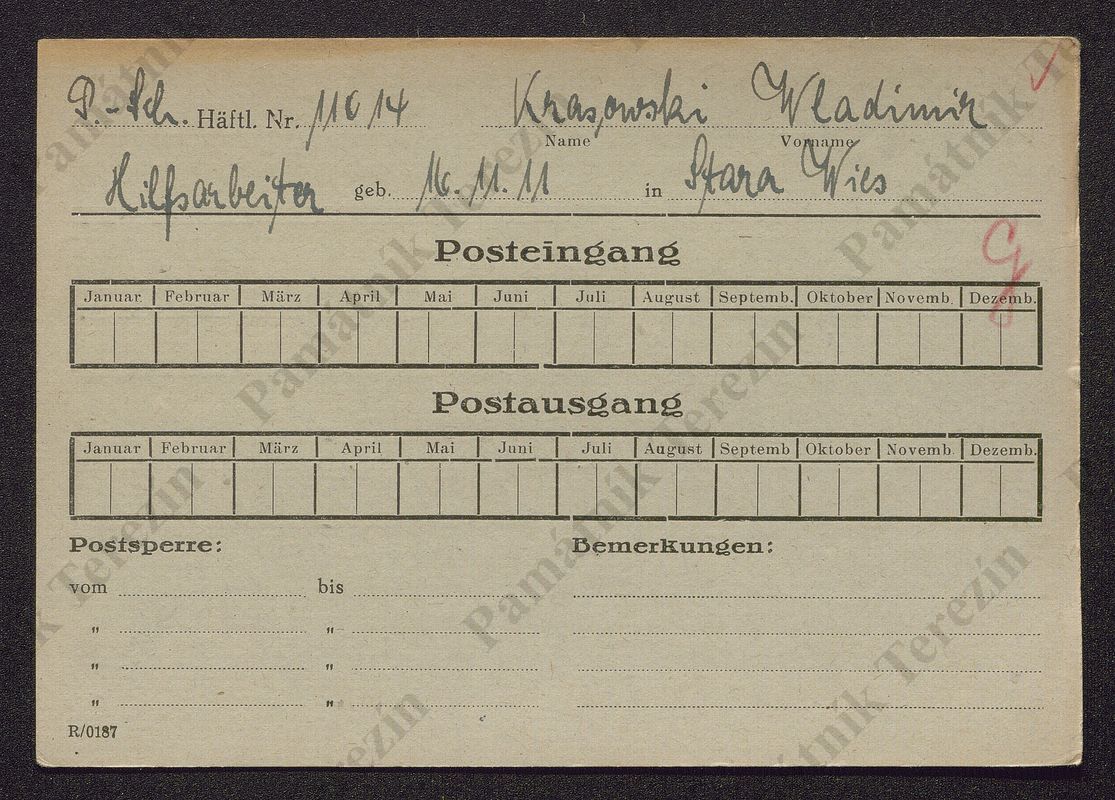 P.-Sch. Häftl. Nr. 11614 Krasowski Wladimir
Name Vorname
Hilfsarbeiter geb. 16.11.11 in Stara Wies
Posteingang
Januar Februar März April Mai Juni Juli August Septemb. Oktober Novemb. Dezemb.
Postausgang
Januar Februar März April Mai Juni Juli August Septemb Oktober Novemb. Dezemb.
Postsperre: Bemerkungen:
vom bis
" "
" "
" "
R/0187
Památník Terezín